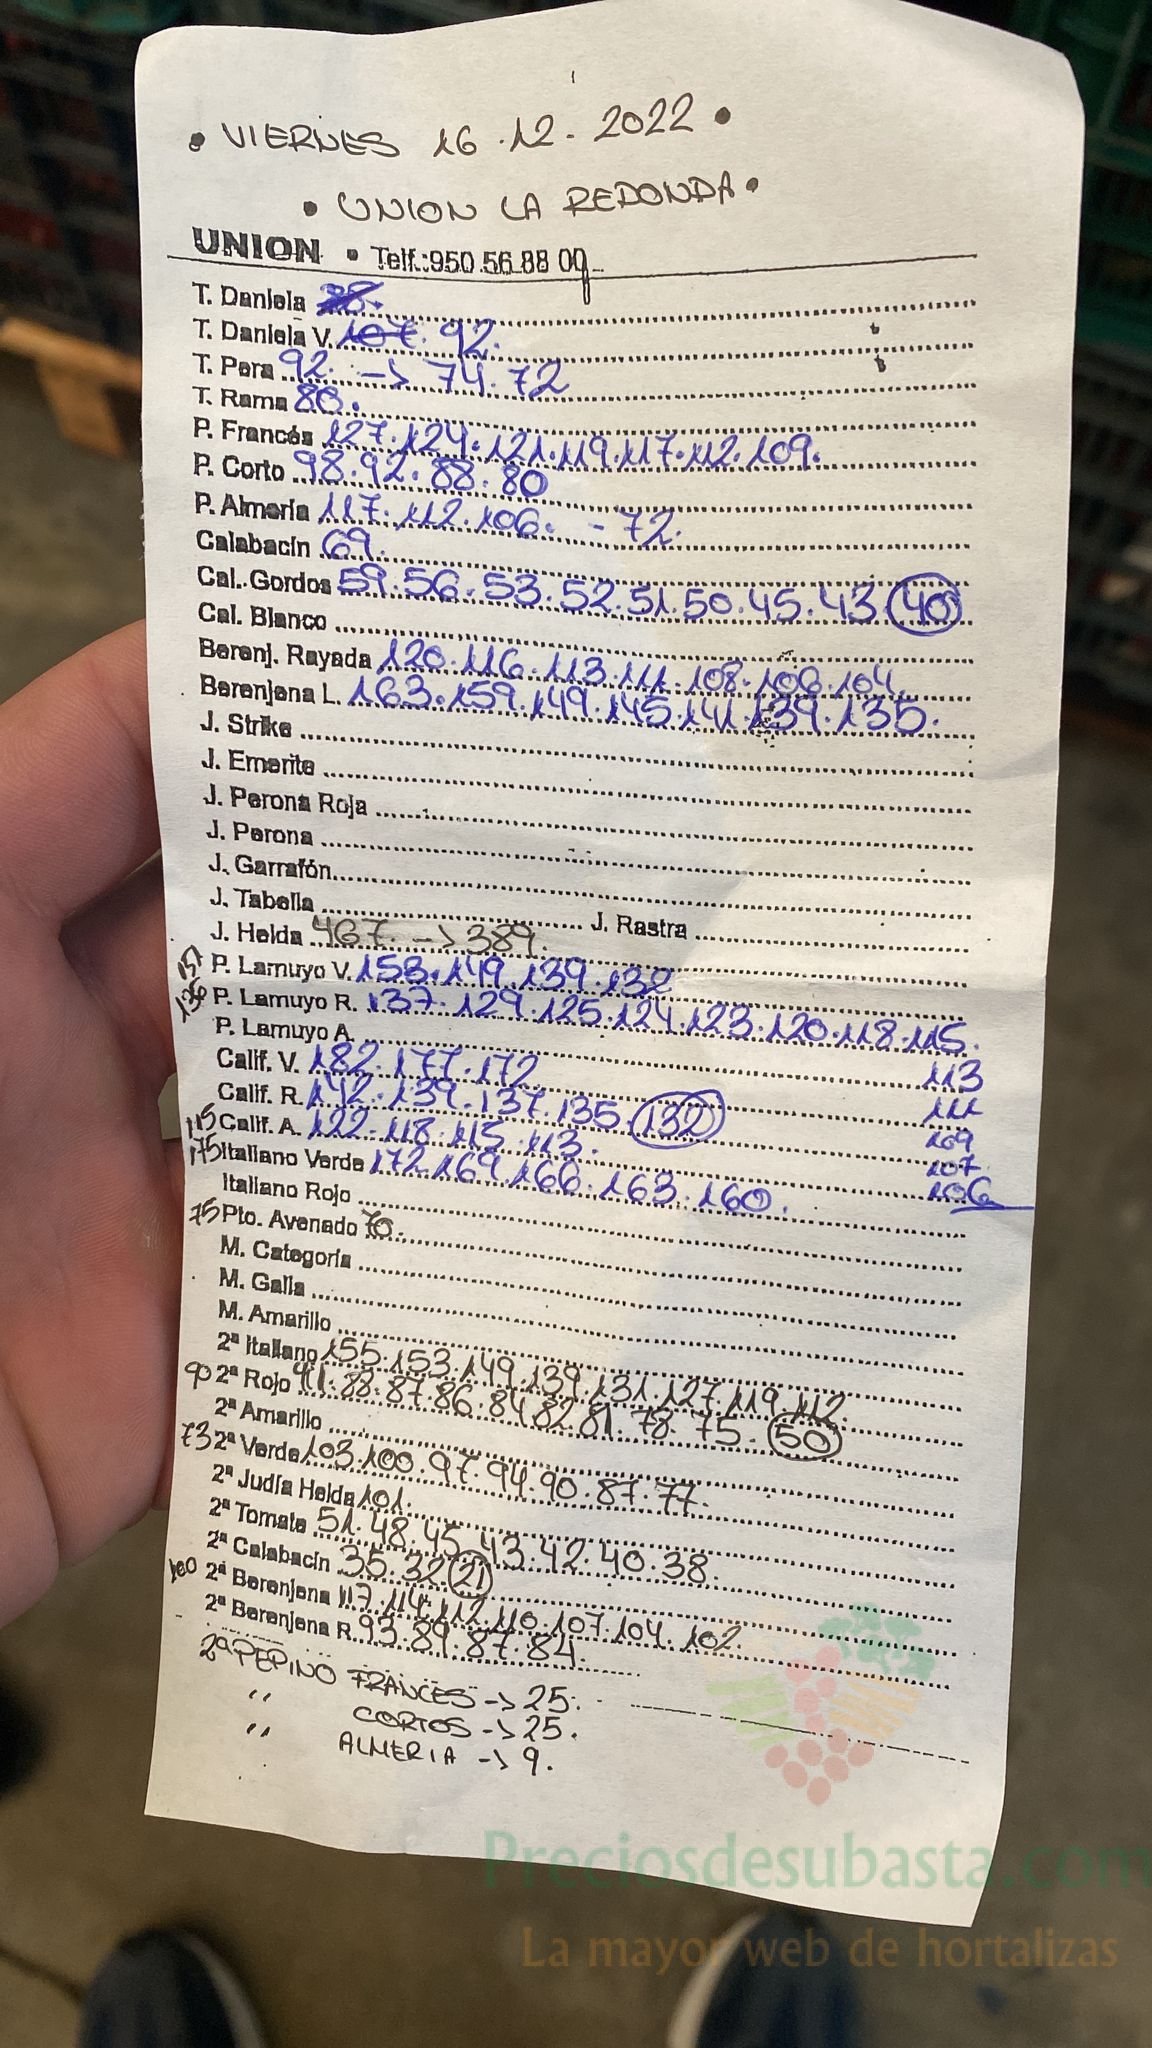 • VIERNES 16.12.2022 •
• UNION LA REDONDA •
UNION • Telf.:950.56.88 09
T. Daniela
T. Daniela V. 107. 92.
T. Pera 92. -> 74.72
T. Rama 80.
P. Francés 127.124.121.119.117.112.109.
P. Corto 98.92.88.80
P. Almería 117.112.106. - 72.
Calabacín 69.
Cal. Gordos 59.56.53.52.51.50.45.43.40
Cal. Blanco
Berenj. Rayada 120.116.113.111.108.106.104.
Berenjena L. 163.159.149.145.141.139.135.
J. Strike
J. Emerite
J. Perona Roja
J. Perona
J. Garrafón
J. Tabella J. Rastra
J. Helda 467. -> 389.
151 P. Lamuyo V. 153.149.139.132
136 P. Lamuyo R. 137.129.125.124.123.120.118.115.
P. Lamuyo A. 113
Calif. V. 182.177.172 111
Calif. R. 142.139.137.135.132 109
115 Calif. A. 122.118.115.113. 107.
175 Italiano Verde 172.169.166.163.160. 106
Italiano Rojo
75 Pto. Avenado 70.
M. Categoría
M. Galia
M. Amarillo
2ª Italiano 155.153.149.139.131.127.119.112.
90 2ª Rojo 91.88.87.86.84.82.81.78.75.50
2ª Amarillo
73 2ª Verde 103.100.97.94.90.87.77.
2ª Judía Helda 101.
2ª Tomate 51.48.45.43.42.40.38.
2ª Calabacín 35.32.21
100 2ª Berenjena 117.114.112.110.107.104.102.
2ª Berenjena R. 93.89.87.84.
2ª PEPINO FRANCES -> 25.
" CORTOS -> 25.
" ALMERIA -> 9.
Preciosdesubasta.com
La mayor web de hortalizas